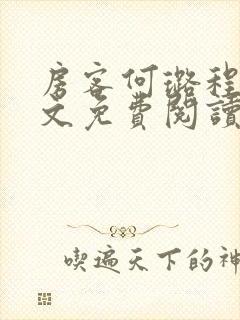 房客何璐程
文免費閱讀
喫遍天下的神